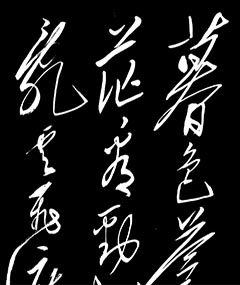 暮色苍
茫看劲
乱云飞渡